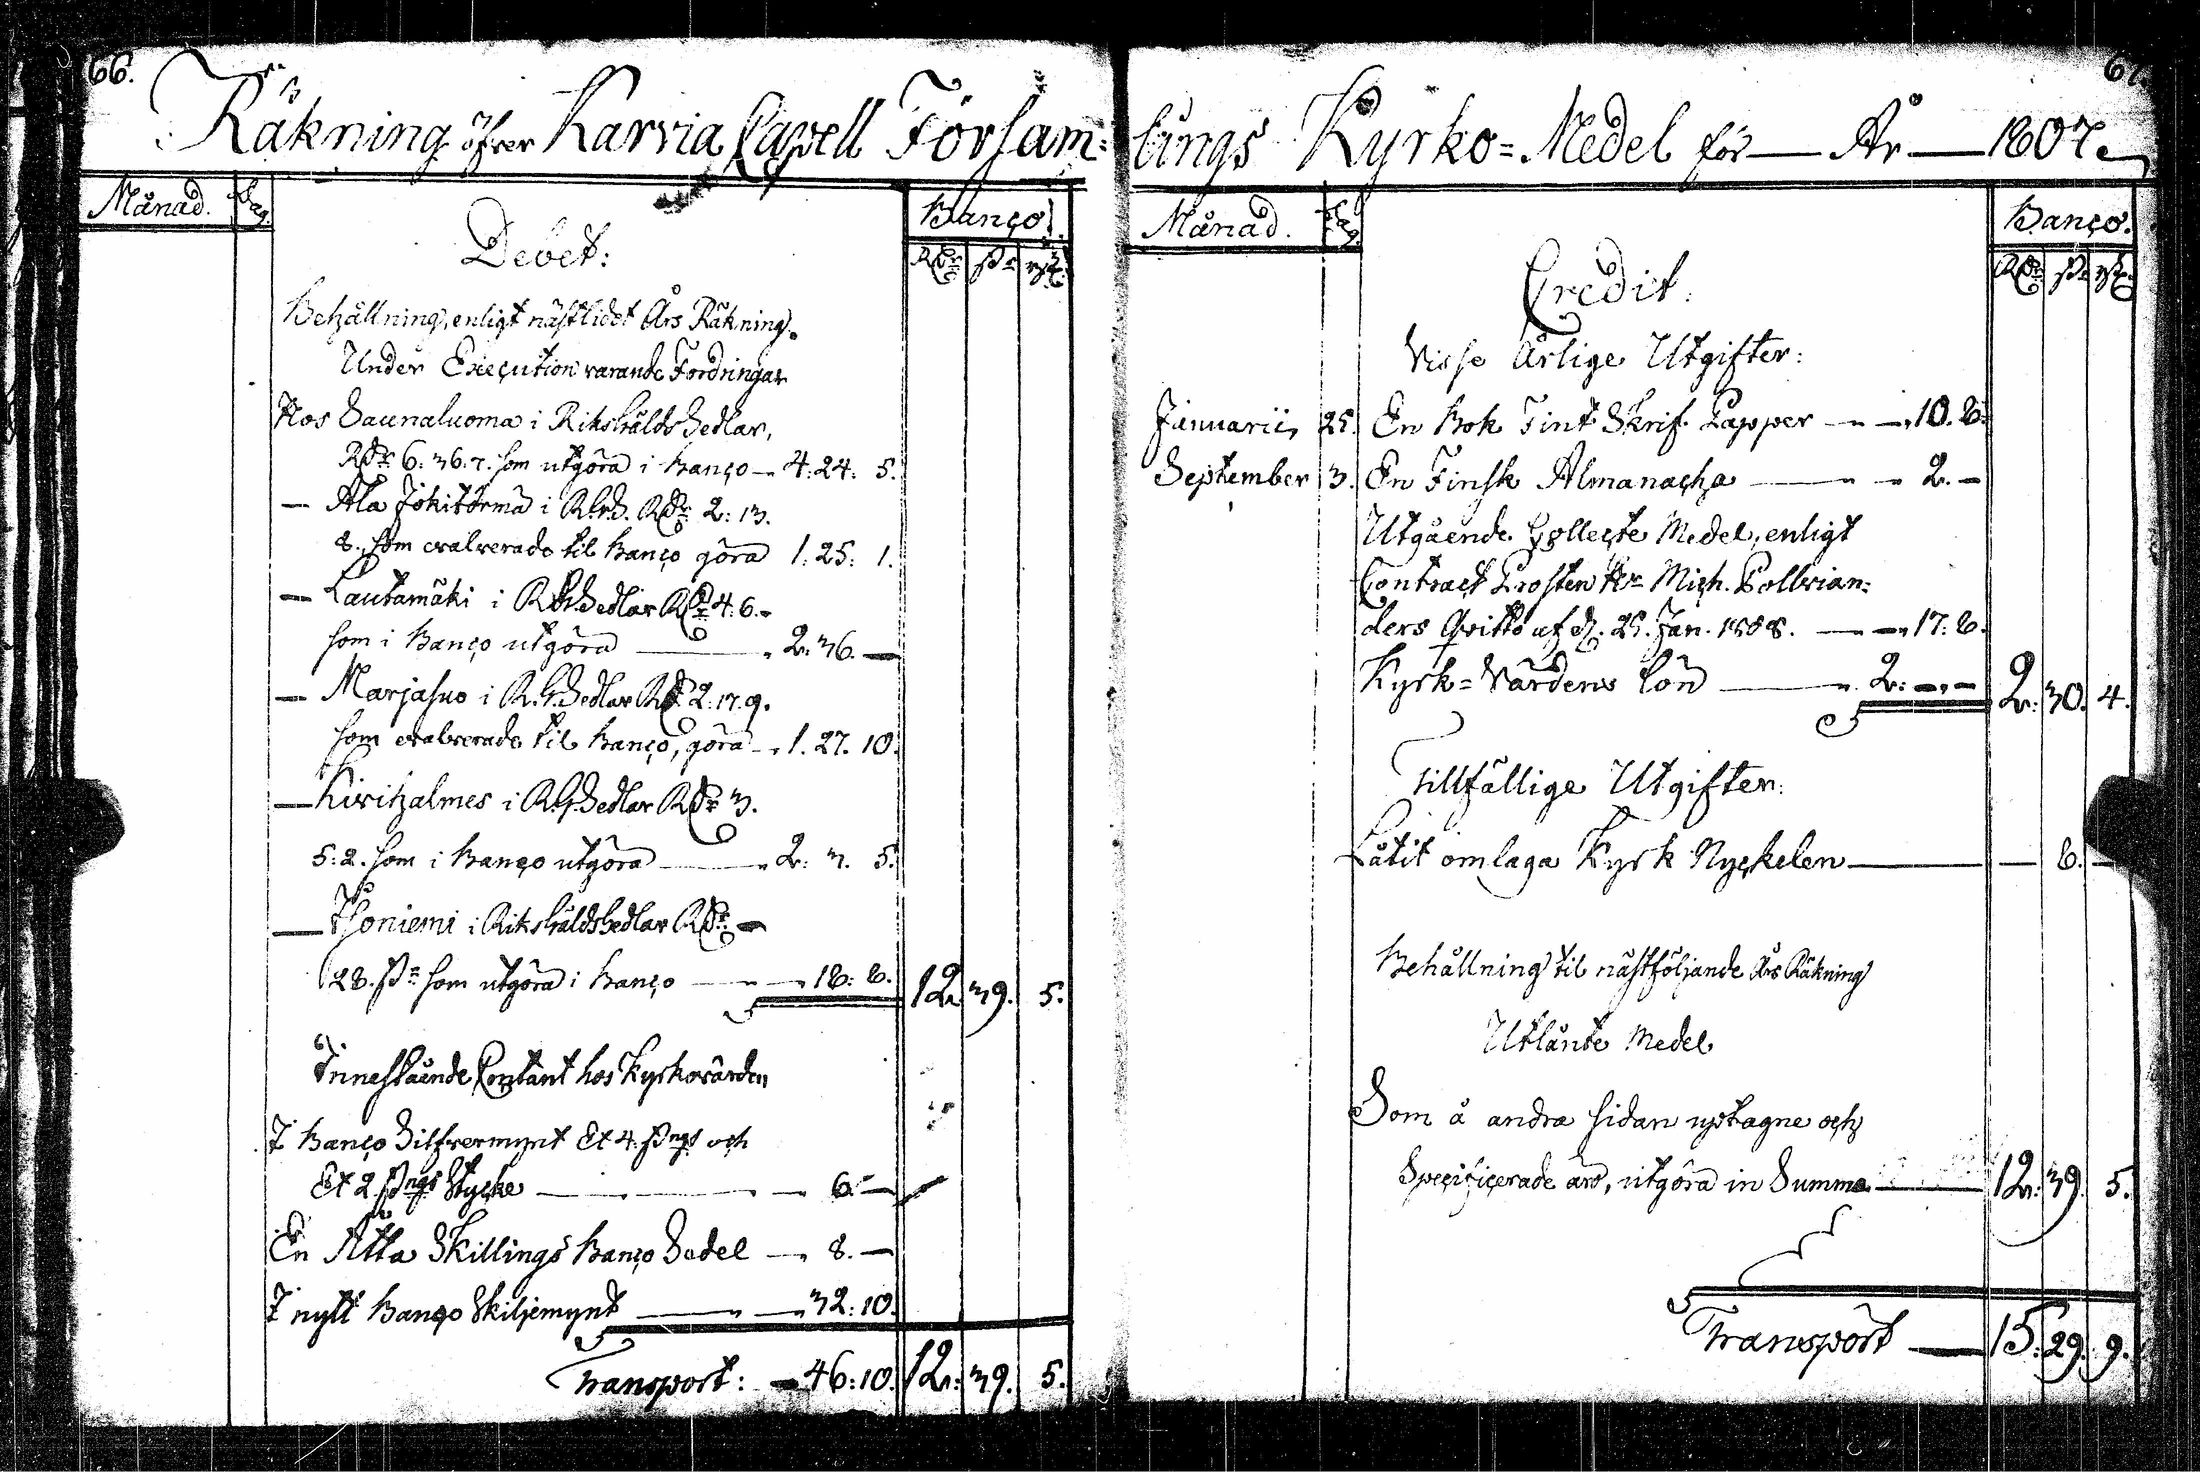 66.
Räkning öfver Karvia Capell Församl:
Månad. Dag.
Banco.
Debet:
Rdr ß rst.
Behållning, enligt nästlidet Års Räkning.
Under Execution varande Fordringar
Hos Saunaluoma i Riksgälds Sedlar,
Rdr 6: 36. 7. som utgöra i Banco — 4: 24: 5.
— Ala Jokitörmä i R.G.S. Rdr 2: 13.
8. som evalverade til Banco göra 1: 25: 1.
— Lautamäki i R.G. Sedlar Rdr 4: 6. -
som i Banco utgöra — 2: 36. —
— Marjasuo i R.G. Sedlar Rdr 2: 17. 9.
som evalverade til Banco, göra — 1. 27. 10.
— Kivihalmes i R.G. Sedlar Rdr 3.
5: 2. som i Banco utgöra — 2: 3. 5.
— Honiemi i Riksgäldssedlar Rdr —
28. ß som utgöra i Banco — 18: 8. 12. 39. 5.
Innestående Contant hos Kyrkovärden
I Banco Silfvermynt Et 4. ßngs och
Et 2 ßngs Stycke — 6. —
En Åtta Skillings Banco Sedel — 8. —
I nytt Banco Skiljemynt — 32: 10.
Transport: — 46: 10. 12: 39. 5.
67.
lings Kyrko=Medel för — År — 1807.
Månad. Dag.
Banco.
Rdr ß rst.
Credit:
Visse Årlige Utgifter:
Januarii, 25. En Bok Fint Skrif Papper — 10. 8.
September 3. En Finsk Almanacha — 2. —
Utgående Collecte Medel, enligt
Contract Prosten Hr Mich. Polvian:
ders Qvitto af d. 25. Jan. 1808. — 17: 8.
Kyrk=Värdens lön — 2: —. — 2: 30. 4.
Tillfällige Utgifter:
Låtit omlaga Kyrk Nyckelen — 8. —
Behållning til nästföljande Års Räkning
Utlånte Medel
Som å andra sidan uptagne och
Specificerade äro, utgöra in Summa — 12: 39. 5.
Transport — 15: 29. 9.